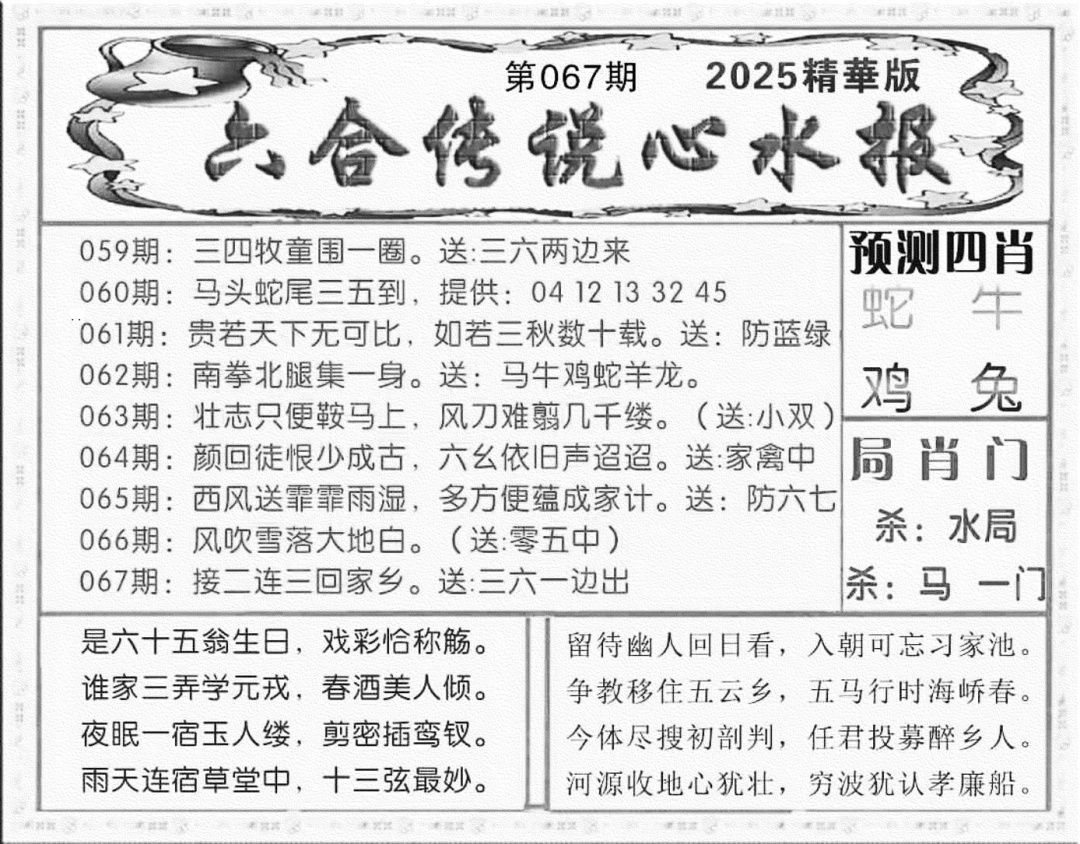 第067期 2025精華版
六合传说心水报
059期：三四牧童围一圈。送:三六两边来
060期：马头蛇尾三五到，提供：04 12 13 32 45
061期：贵若天下无可比，如若三秋数十载。送：防蓝绿
062期：南拳北腿集一身。送：马牛鸡蛇羊龙。
063期：壮志只便鞍马上，风刀难翦几千缕。（送:小双）
064期：颜回徒恨少成古，六幺依旧声迢迢。送:家禽中
065期：西风送霏霏雨湿，多方便蕴成家计。送：防六七
066期：风吹雪落大地白。（送:零五中）
067期：接二连三回家乡。送:三六一边出
预测四肖
蛇 牛
鸡 兔
局肖门
杀：水局
杀：马 一门
是六十五翁生日，戏彩恰称觞。
谁家三弄学元戎，春酒美人倾。
夜眠一宿玉人缕，剪密插鸾钗。
雨天连宿草堂中，十三弦最妙。
留待幽人回日看，入朝可忘习家池。
争教移住五云乡，五马行时海峤春。
今体尽搜初剖判，任君投募醉乡人。
河源收地心犹壮，穷波犹认孝廉船。